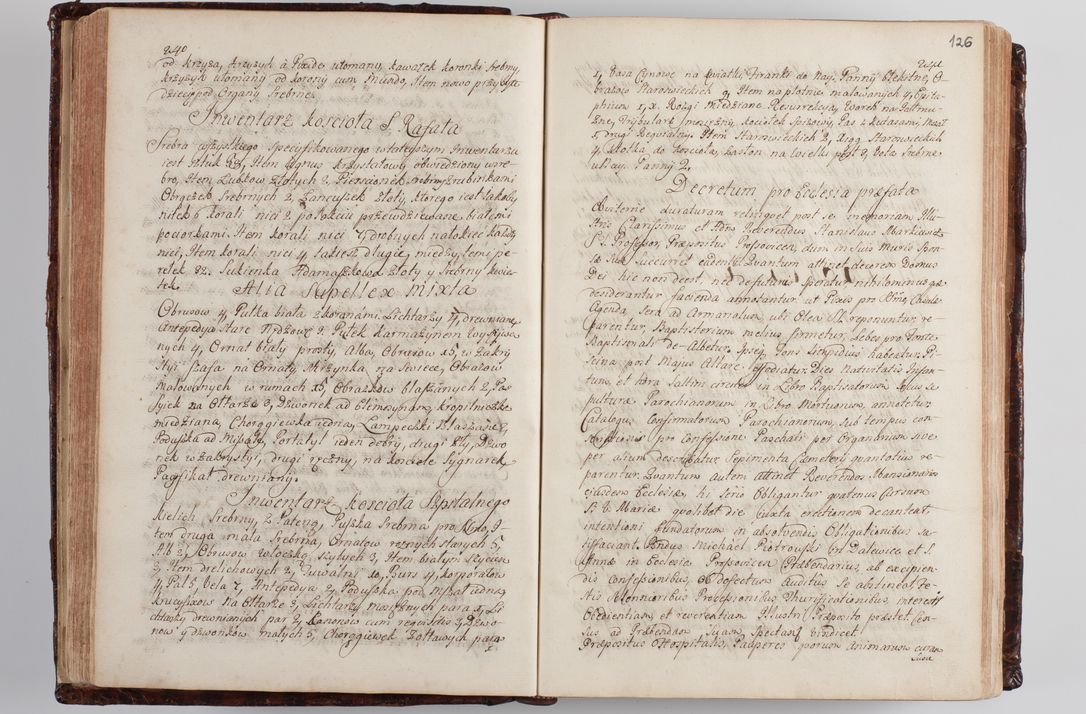 240
od krzyza, krzyzyk á Parte utomany, kawałek koronki srebrny
krzyzyk utomany od korony cum Mundo, Item nowo przybyła
pod Organy srebrne.
Inwentarz kosciola S. Rafala
Srebra wszystkiego Specyfikowanego w teteyszym Inwentarzu
iest Sztuk 52, Item Agnus krzyształowy obwiedziony w sre-
bro, Item Lubkow złotych 2, Pierscionek srebrny z rubinkami
Obrączek srebrnych 2, Łancuszek złoty,
nitek 6 korali nici 2 po łokciu przewdziewane białemi
paciorkami. Item korali nici 7 drobnych na łokiec każda
nici, Item korali nici 4 także długie, między temi pe-
rełek 22. Sukienka Adamaszkowa złoty y srebrny kwia-
tek.
Alia Supellex mixta
Obrusow 4, Pulka biała z koranami, Lichtarzy 7, drewniane
Antepedya stare Nędzowe 2 Pułek karmazynem
nych 4, Ornat biały prosty, Alba, Obrusow 15, w Zakry
styi szafa na Ornaty, Skrzynka na swiece, Obrazow
malowanych w rumach 15, Obrazkow blaszanych 2, Pa-
syiek na Ołtarze 3, Dzwonek ad Elemosynam, kropilniczka
miedziana, Chorągiewka iedna, Lampeczki blaszane 2,
Poduszka ad Missale, Portatyl ieden dobry, drugi zły, Dzwo
nek w Zakrystyi, drugi ręczny, na kosciele Sygnarek,
Pacyfikał drewniany.
Inwentarz kosciola Szpitalnego
kielich srebrny z Pateną, Puszka srebrna pro
tem druga mała srebrna, Ornatow roznych starych 5,
Alb 2, Obrusow szytych 3, Item białym szyciem
3, Item drelichowych 2, Tuwalni 10, Burs 4, korporałow
4, Pal 5, Vela 7, Antepedya 2, Poduszka pod Mszał iedna,
krucyfixow na Ołtarze 3, Lichtarzy mosiężnych para 1, Li
chtarzy drewnianych par 2, kanonow cum requisitis 3, Dzwo-
now y dzwonkow małych 5, Chorągiewek Żołtawych para
1.
126
241
1, Vasa Cynowe na kwiatki, Firanki do Nay. Panny 2 stołne, O-
brazow Starosieckich 9, Item na płotnie malowanych 4, Epita-
phium 1, x. Rożgi miedziane Resurrekcya, Worek na Iałmu-
żne, Trybularz mosiężny, kociołek spiżowy, Pas z kutasami,
5, drugi Requialny, Item Starosieckich 2,
4, Młotka do kosciola, Zasłon na wielki post 3, Vota srebrne
u Nay. Panny 2.
Decretum pro Ecclesia præfata
Æviterne duraturam relinquet post se memoriam Illu-
stris Clarissimus et Adm Reverendus Stanislaus Markiewicz
S. T. Professor, Præpositus Prossovicen, dum in suis Muris Spon-
sæ suæ succurret eidem. Quantum attinet decorem Domus
Dei hic non deest, nec defutura speratur nihilominus quæ
desiderantur facienda annotantur, ut Pixis pro
Agenda, sera ad Armariolum, ubi Olea SS. reponuntur, re-
parentur, Baptisterium melius firmetur, Lebes pro Fonte
Baptismali de-Albetur, Ipseq Fons Lapideus habeatur. Pi-
scina post Majus Altare effodiatur. Dies Naturitatis Infan-
tum, et Hora saltim circiter in Libro Baptisatorum, Locus se-
pulturæ Parochianorum in Libro Mortuorum, annotetur.
Catalogus Confirmatorum Parochianorum, sub tempus con-
scriptus pro Confessione Paschali per Organarium sive
per alium describatur. Sepimenta Cæmeterij quantotius re-
parentur. Quantum autem attinet Reverendos Mansionarios
ejusdem Ecclesiæ, hi serio Obligantur quatenus Cursum
B. V. Mariæ quolibet die juxta erectionem decantent,
intentioni Fundatorum in absolvendis Obligationibus sa-
tisfaciant. Rndus Michaël Piotrowski in Dalewice et S.
Annæ in Ecclesia Prossovicen Præbendarius, ab excipien-
dis confessionibus, ob defectum Auditûs se abstineat Fe-
stis Mennioribus Processionibus Thurificationibus, intersit
Obedientiam, et reverentiam Illustri Præposito præstet. Cen-
sus ad Præbendam suam Spectan Vindicet.
Præpositus Hospitalis, Pauperes quorum animarum curam
suam